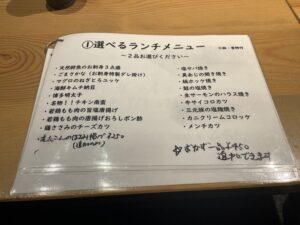 ①選べるランチメニュー
～2品お選びください～
・天然鮮魚のお刺身3点盛
・ごまさかな（お刺身特製ダレ掛け）
・マグロのねぎとろユッケ
・海鮮キムチ納豆
・博多明太子
・名物！！チキン南蛮
・若鶏もも肉の旨塩唐揚げ
・若鶏もも肉の唐揚げおろしポン酢
・鶏ささみのチーズカツ
・塩サバ焼き
・真あじの開き焼き
・縞ホッケ焼き
・鮭の塩焼き
・生サーモンのハラス焼き
・キサイコロカツ
・三元豚の塩麹焼き
・カニクリームコロッケ
・メンチカツ
おかず一品¥450
追加できます